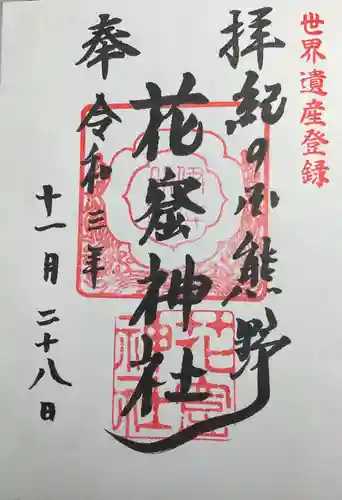 世界遺産登録
奉拝
紀の国熊野
花窟神社
令和三年
十一月二十八日
花窟
神社